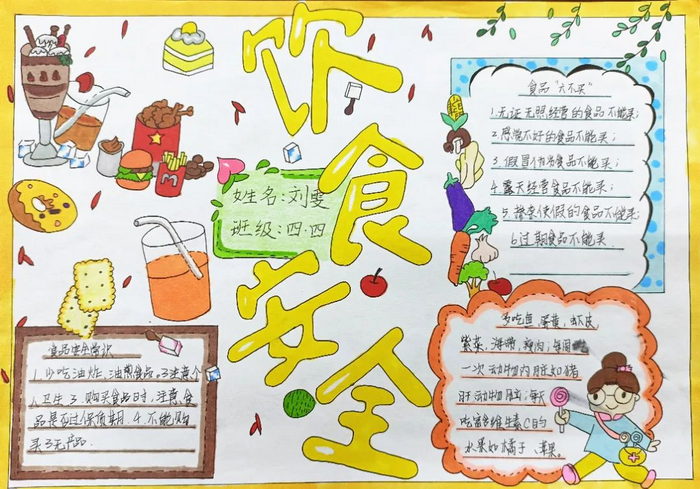 饮食安全
姓名:刘雯
班级:四.四
食品"六不买"
1.无证无照经营的食品不能买;
2.感觉不好的食品不能买;
3.假冒伪劣食品不能买;
4.露天经营食品不能买;
5.掺杂使假的食品不能买;
6.过期食品不能买
食品安全常识
1.少吃油炸、油煎食品,2.注意个
人卫生 3.购买食品时,注意食
品是否过保质期.4.不能购
买三无产品.
多吃鱼,蛋黄,虾皮
紫菜,海带,瘦肉;每周
一次动物内脏如猪
肝动物脑;每天
吃富多维生素C的
水果如橘子、苹果.